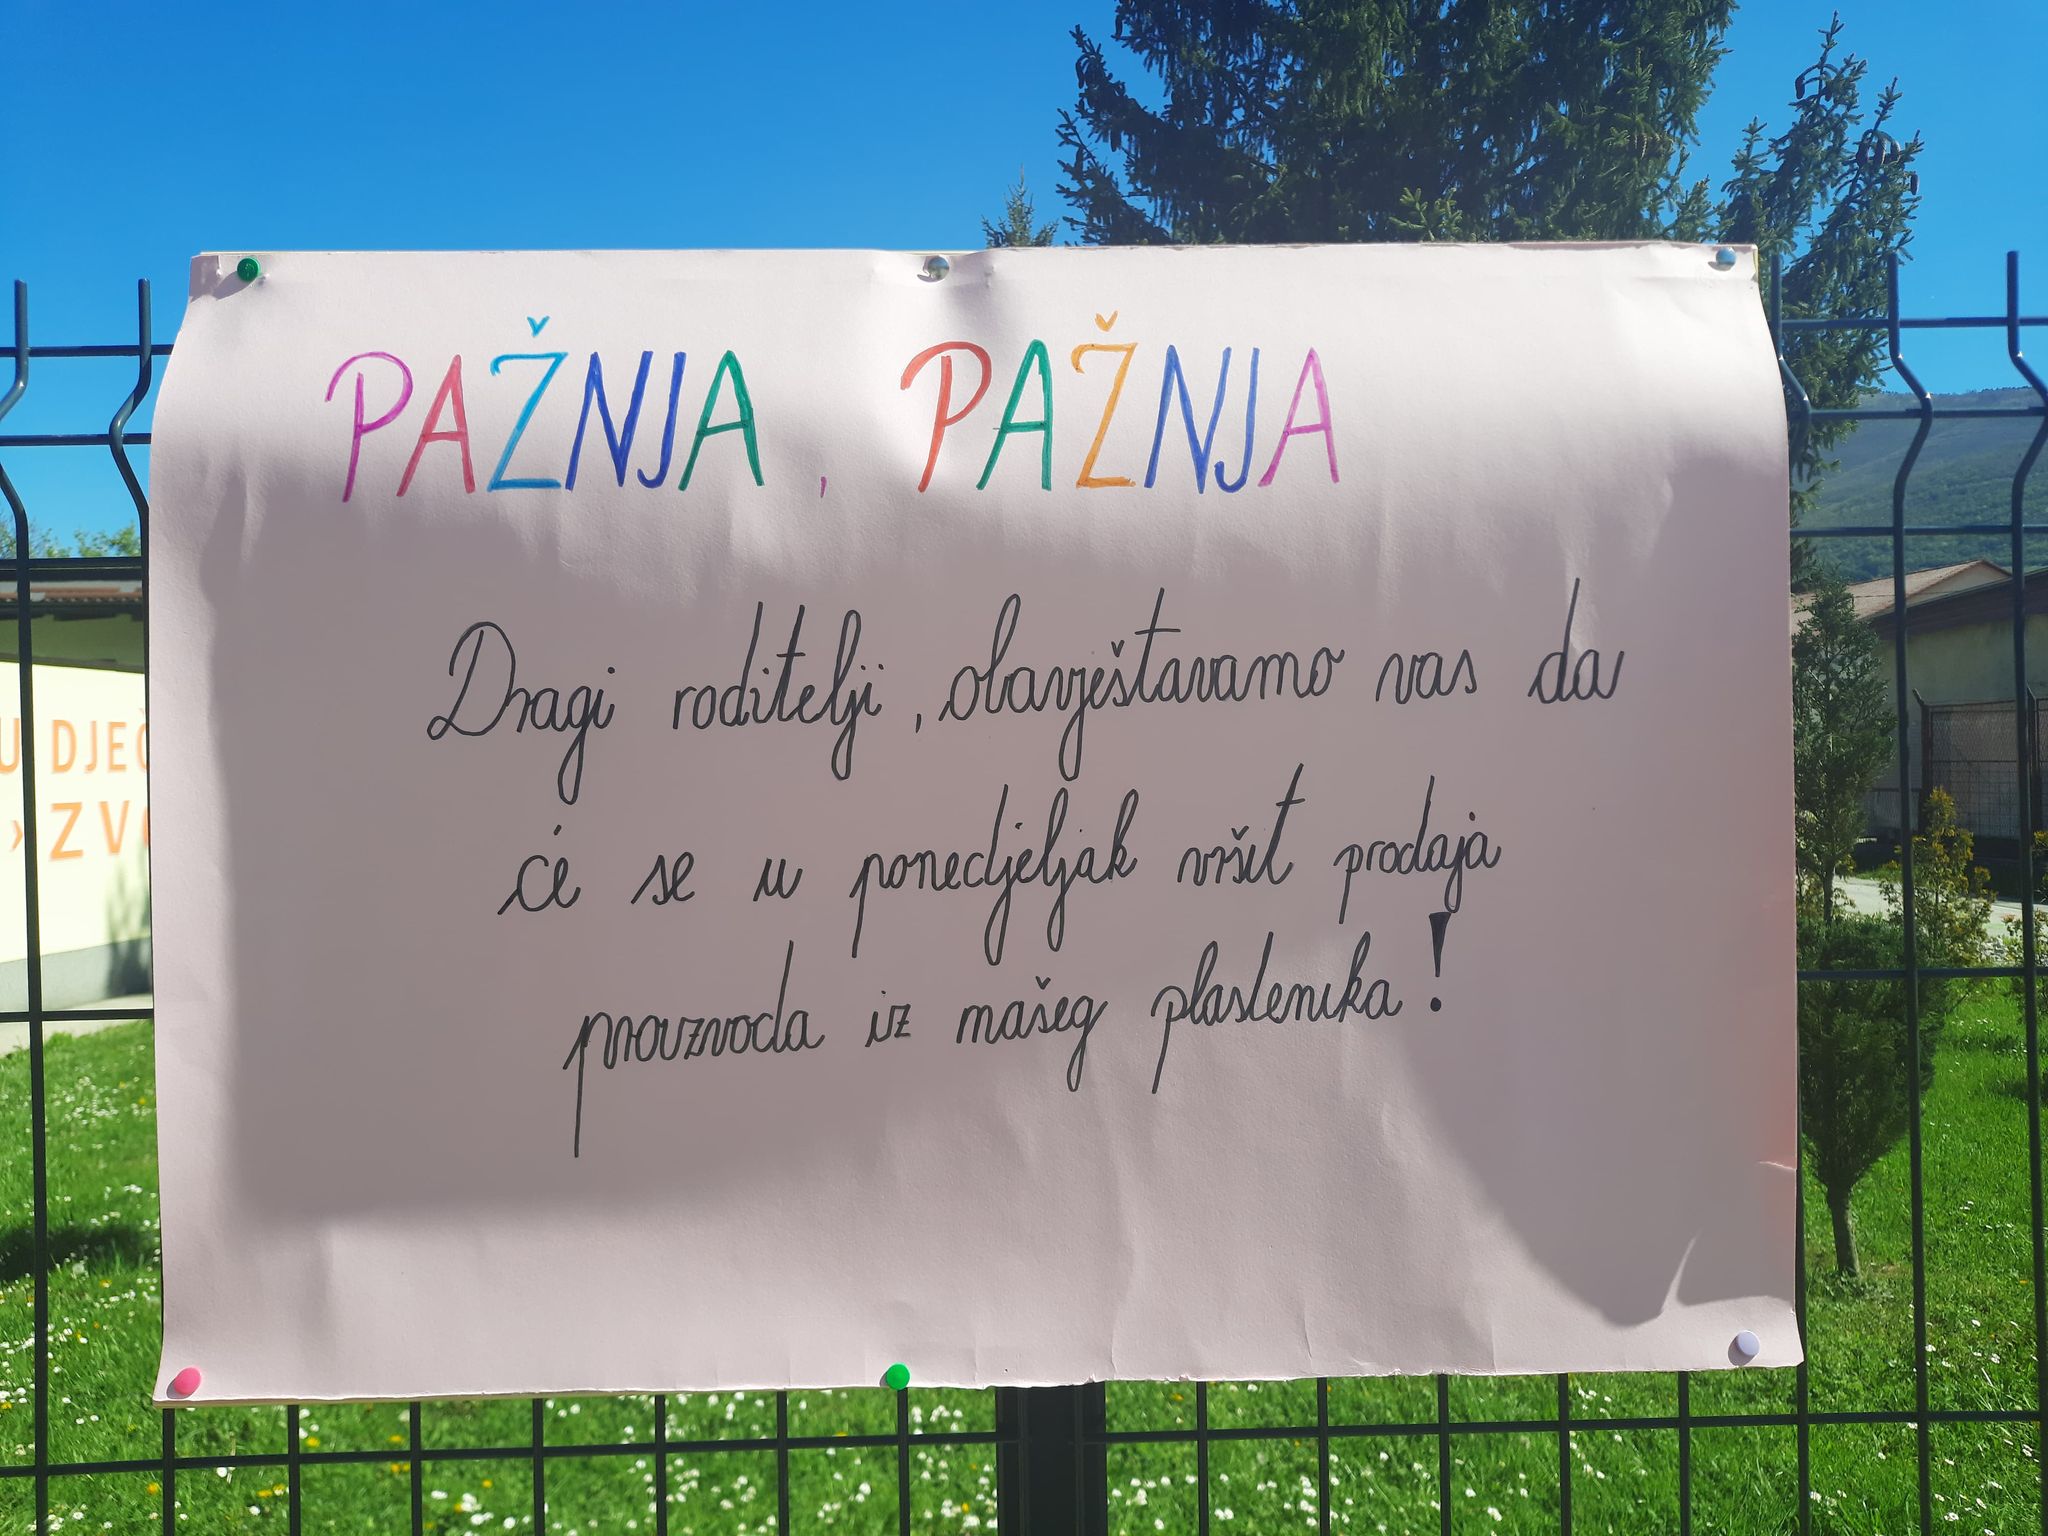 PAŽNJA, PAŽNJA
Dragi roditelji, obavještavamo vas da
će se u ponedjeljak vršit prodaja
proizvoda iz našeg plastenika!
U DJEČ
ZV